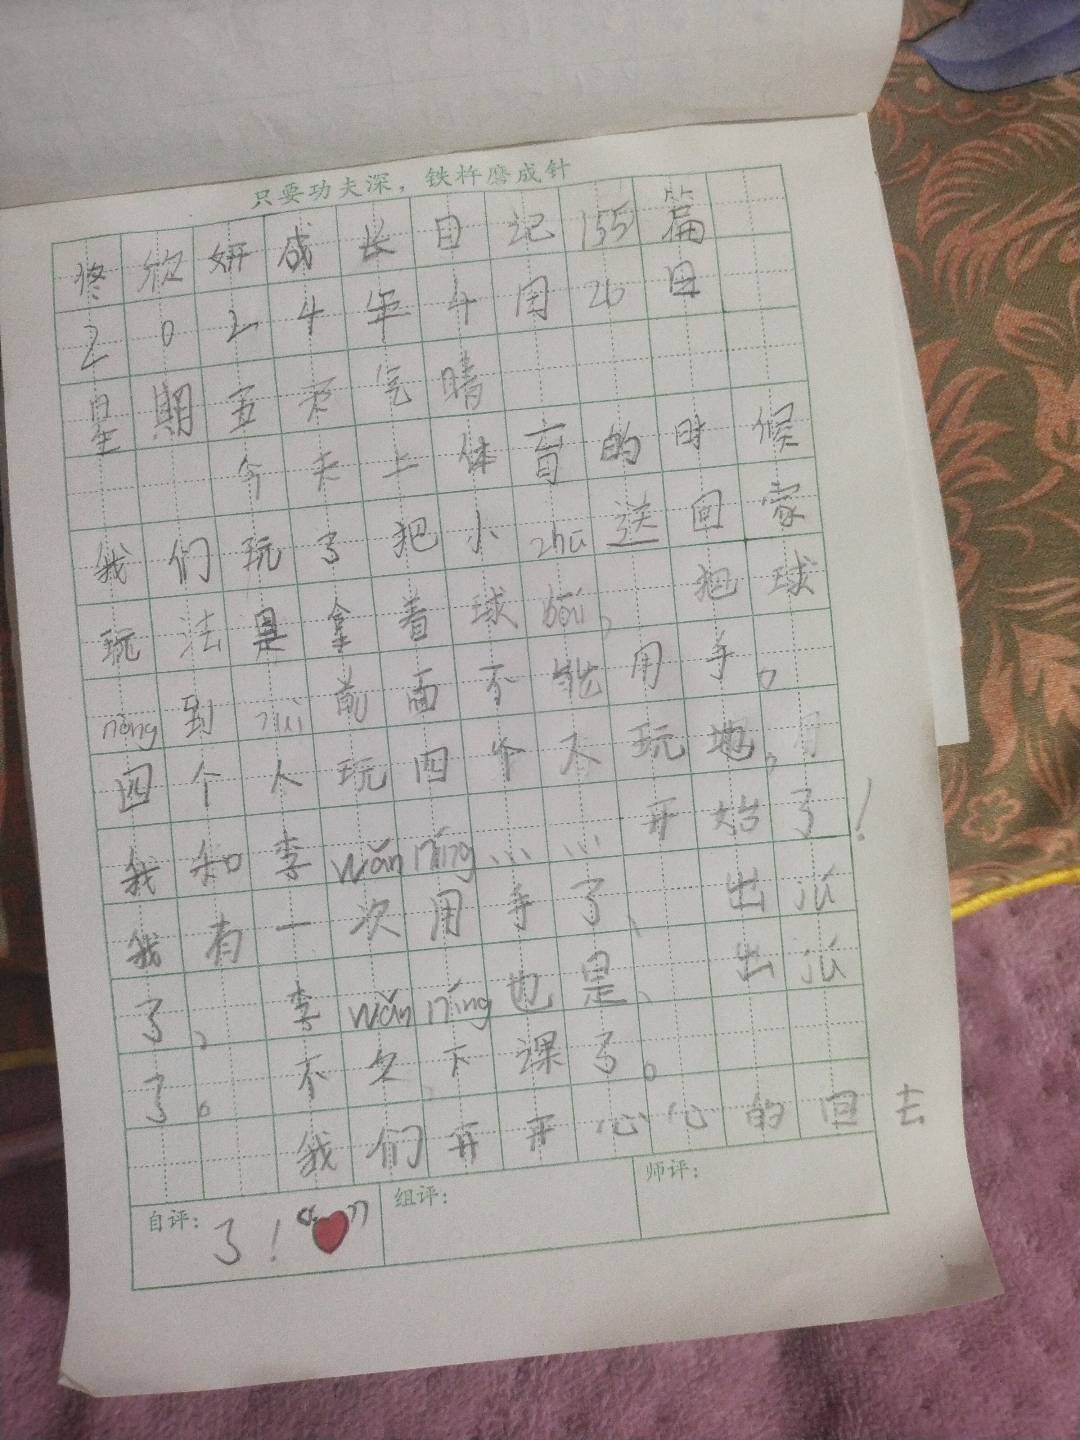 只要功夫深，铁杵磨成针
佟欣妍成长日记155篇
2024年4月26日
星期五天气晴
今天上体育的时候
我们玩了把小zhū送回家
玩法是拿着球bàng，把球
nòng到zuì前面不能用手。
四个人玩四个人玩地，
我和李wǎn níng……开始了！
我有一次用手了、出jú
了，李wǎn níng也是、出jú
了。不久，下课了。
我们开开心心的回去
自评：了！“❤” 组评： 师评：